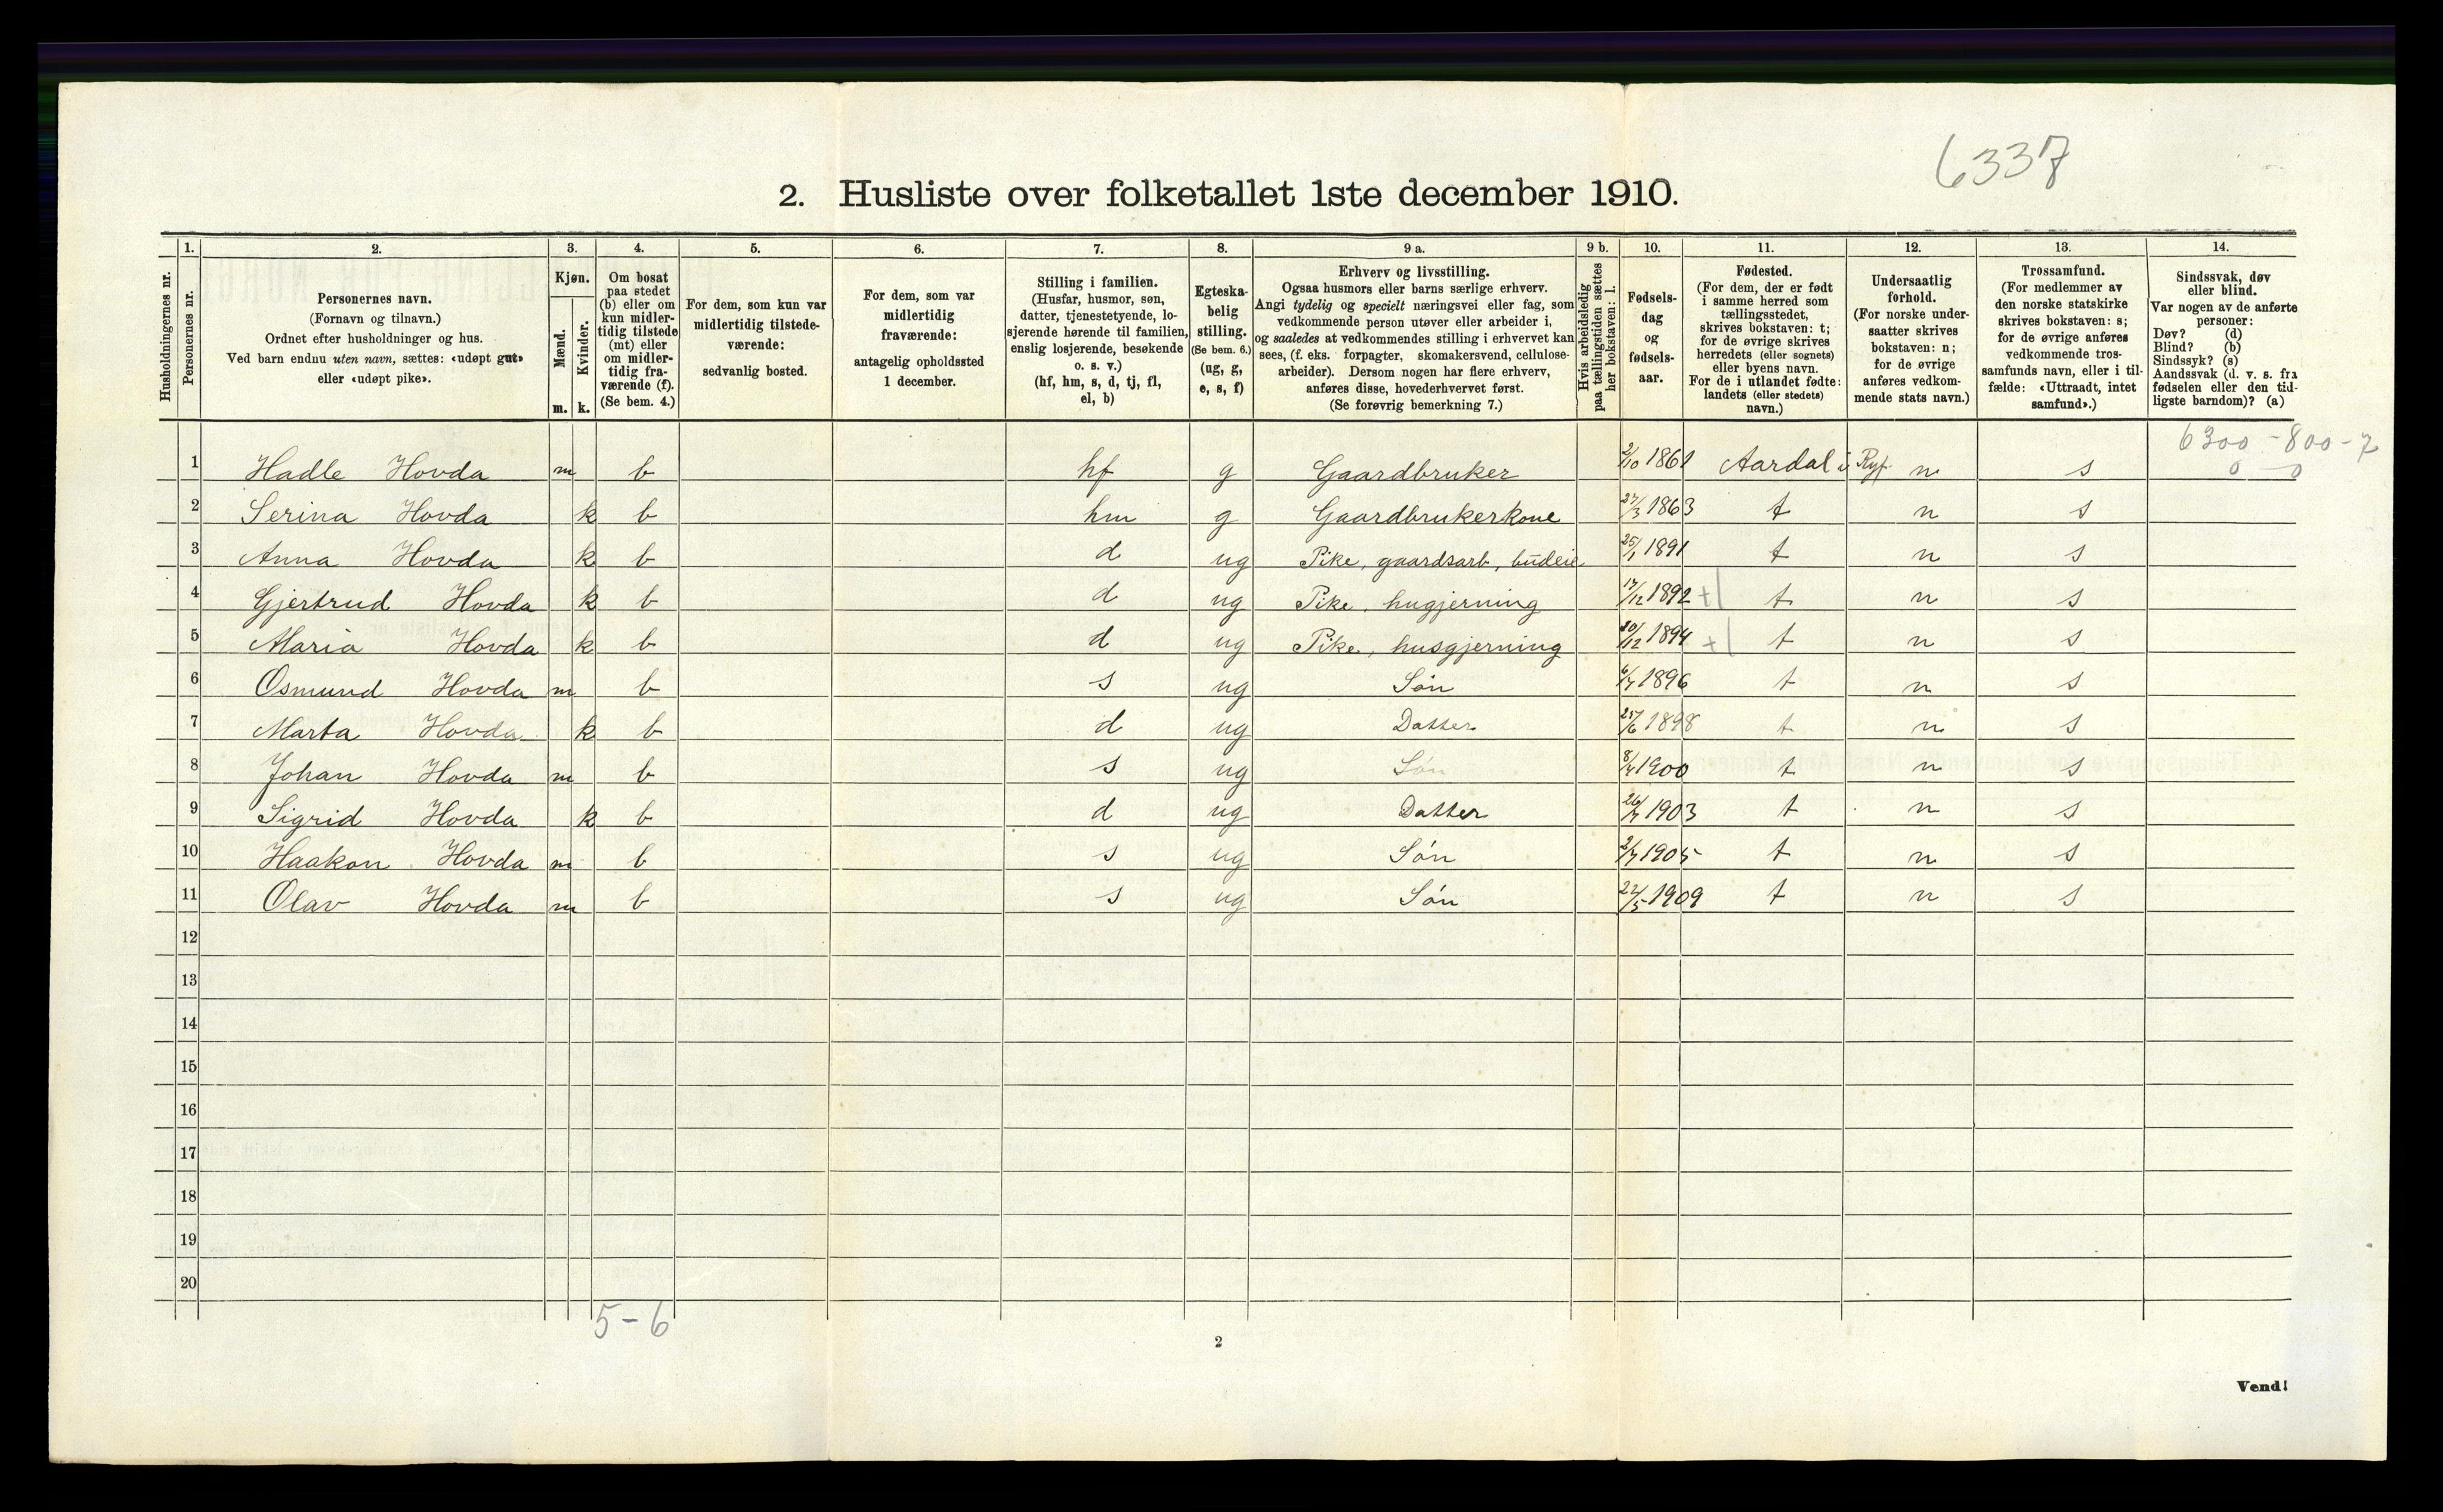 6337
2. Husliste over folketallet 1ste december 1910.
1. 2. 3. 4. 5. 6. 7. 8. 9 a. 9 b. 10. 11. 12. 13. 14.
Husholdningernes nr.
Personernes nr.
Personernes navn.
(Fornavn og tilnavn.)
Ordnet efter husholdninger og hus.
Ved barn endnu uten navn, sættes: «udøpt gut»
eller «udøpt pike».
Kjøn.
Mænd.
Kvinder.
m. k.
Om bosat
paa stedet
(b) eller om
kun midler-
tidig tilstede
(mt) eller
om midler-
tidig fra-
værende (f).
(Se bem. 4.)
For dem, som kun var
midlertidig tilstede-
værende:
sedvanlig bosted.
For dem, som var
midlertidig
fraværende:
antagelig opholdssted
1 december.
Stilling i familien.
(Husfar, husmor, søn,
datter, tjenestetyende, lo-
sjerende hørende til familien,
enslig losjerende, besøkende
o. s. v.)
(hf, hm, s, d, tj, fl,
el, b)
Egteska-
belig
stilling.
(Se bem. 6.)
(ug, g,
e, s, f)
Erhverv og livsstilling.
Ogsaa husmors eller barns særlige erhverv.
Angi tydelig og specielt næringsvei eller fag, som
vedkommende person utøver eller arbeider i,
og saaledes at vedkommendes stilling i erhvervet kan
sees, (f. eks. forpagter, skomakersvend, cellulose-
arbeider). Dersom nogen har flere erhverv,
anføres disse, hovederhvervet først.
(Se forøvrig bemerkning 7.)
Hvis arbeidsledig
paa tællingstiden sættes
her bokstaven: l.
Fødsels-
dag
og
fødsels-
aar.
Fødested.
(For dem, der er født
i samme herred som
tællingsstedet,
skrives bokstaven: t;
for de øvrige skrives
herredets (eller sognets)
eller byens navn.
For de i utlandet fødte:
landets (eller stedets)
navn.)
Undersaatlig
forhold.
(For norske under-
saatter skrives
bokstaven: n;
for de øvrige
anføres vedkom-
mende stats navn.)
Trossamfund.
(For medlemmer av
den norske statskirke
skrives bokstaven: s;
for de øvrige anføres
vedkommende tros-
samfunds navn, eller i til-
fælde: «Uttraadt, intet
samfund».)
Sindssvak, døv
eller blind.
Var nogen av de anførte
personer:
Døv? (d)
Blind? (b)
Sindssyk? (s)
Aandssvak (d. v. s. fra
fødselen eller den tid-
ligste barndom)? (a)
6300-800-7
0 0
1 Hadle Hovda m b hf g Gaardbruker 2/10 1861 Aardal i Ryf. n s
2 Serina Hovda k b hm g Gaardbrukerkone 27/3 1863 t n s
3 Anna Hovda k b d ug Pike, gaardsarb, budeie 25/1 1891 t n s
4 Gjertrud Hovda k b d ug Pike, hugjerning 17/12 1892 + t n s
5 Maria Hovda k b d ug Pike, husgjerning 20/12 1894 + t n s
6 Osmund Hovda m b s ug Søn 1896 t n s
7 Marta Hovda k b d ug Datter 25/6 1898 t n s
8 Johan Hovda m b s ug Søn 1900 t n s
9 Sigrid Hovda k b d ug Datter 1903 t n s
10 Haakon Hovda m b s ug Søn 1905 t n s
11 Olav Hovda m b s ug Søn 22/5 1909 t n s
12
13
14
15
16
17
18
19
20
5-6
2
Vend!